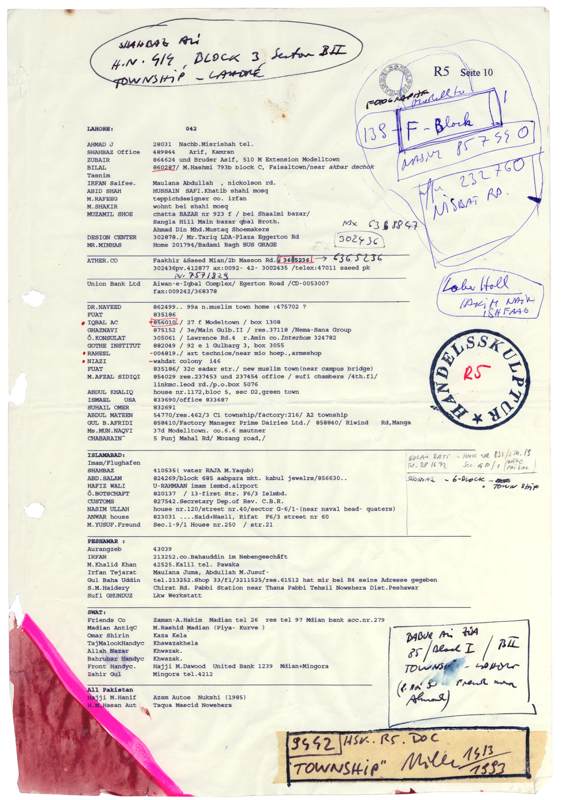 SHAHBAZ Ali
H.N. 414, BLOCK 3, Sector BII
TOWNSHIP - LAHORE
R5 Seite 10
138 - F - Block
857990
232760
NISBAT RD.
LAHORE: 042
AHMAD J 28031 Nachb.Misrishah tel.
SHAHBAZ Office 489864 Arif, Kamran
ZUBAIR 864624 und Bruder Asif, 510 M Extension Modelltown
BILAL 860287/ M.Hashmi 793b block C, Faisaltown/near akbar dschok
Tasnim
IRFAN Saifee. Maulana Abdullah , nickolson rd.
ABID SHAH HUSSAIN SAFI.Khatib shahi moeq
M.RAFEEG teppichdesigner co. irfan
M.SHAKIR wohnt bei shahi moeq
MUZAMIL SHOE chatta BAZAR nr 923 f / bei Shaalmi bazar/
Sangla Hill Main bazar qbal Broth.
Ahmad Din Mhd.Mustaq Shoemakers
DESIGN CENTER 302878./ Mr.Tariq LDA-Plaza Eggerton Rd
MR.MINHAS Home 201794/Badami Bagh BUS GRAGE
302436
ATHER.CO Faakhir &Saeed Mian/2b Masson Rd. 6365236 → 6365236
302436pr.412877 ax:0092- 42- 3002435 /telex:47011 saeed pk
N. 7571829
Union Bank Ltd Aiwan-e-Iqbal Complex/ Egerton Road /CD-5003007
fax:009242/368378
Lahor Hall
HAKIM NASIR
ISHFAAQ
DR.NAVEED 862499.. 99a n.muslim town home :475702 ?
FUAT 835186
IQBAL AC 856010 / 27 f Modeltown / box 1308
GHAZNAVI 875152 / 3e/Main Gulb.II / res.37118 /Nema-Hans Group
Ö.KONSULAT 305061 / Lawrence Rd.4 r.Amin co.Interhom 324782
GOTHE INSTITUT 882049 / 92 e 1 Gulbarg 3, box 3055
RAHEEL -004819./ art technion/near mio hoep.,armeshop
NIAZI -wahdat colony 146
FUAT 835186/ 32c sadar str./ new muslim town(near campus bridge)
M.AFZAL SIDIQI 854029 res.237453 und 237454 office / sufi chambers /4th.fl/
linkmc.leod rd./p.o.box 5076
ABDUL KHALIQ house nr.1172,bloc 5, sec 02,green town
ISMAEL USA 833690/office 833687
SUHAIL OMER 832691
ABDUL MATEEN 54770/res.462/3 C1 township/factory:216/ A2 township
GUL B.AFRIDI 858410/Factory Manager Prime Dairies Ltd./ 858840/ Riwind Rd,Manga
Ms.MUN.NAQVI 37d Modelltown. co.6.6 mautner
CHABARAIN" 5 Punj Mahal Rd/ Mozang road,/
HANDELSSKULPTUR
R5
ISLAMABAD:
Imam/Flughafen
SHAHBAZ 410636( vater RAJA M.Yaqub)
ABD.SALAM 824269/block 68S aabpara mkt. kabul jewelrs/856630..
HAFIZ WALI U-RAHMAAN imam iembd.airport
Ö.BOTSCHAFT 820137 / 13-first Str. F6/3 Islmbd.
CUSTOMS 827542.Secretary Dep.of Rev. C.B.R.
NASIM ULLAH house nr.120/street nr.40/sector G-6/1-(near naval head- quaters)
ANWAR house 823031 ....Said+Nasli, Rifat F6/3 street nr 60
M.YUSUF.Freund Sec.1-9/1 House nr.250 / str.21
- 6-BLOCK -
TOWN SHIP
PESHAWAR :
Aurangzeb 43039
IRFAN 213252.co.Bahauddin im Nebengeschäft
M.Khalid Khan 42525.Kalil tel. Pawaka
Irfan Tejarat Maulana Juma, Abdullah M.Jusuf-
Gul Baha Uddin tel.213252.Shop 33/f1/3211525/res.61512 hat mir bei R4 seine Adresse gegeben
S.M.Haidery Chirat Rd. Pabbi Station near Thana Pabbi Tehsil Nowshera Dist.Peshawar
Sufi GHUNDUZ Lkw Werkstatt
SWAT:
Friends Co Zaman-A.Hakim Madian tel 26 res tel 97 Mdian bank acc.nr.279
Madian AntiqC M.Rashid Madian (Piya- Kurve )
Omar Shirin Kaza Kela
TajMalookHandyc Khawazakhela
Allah Nazar Khwazak.
Bahrubar Handyc Khwazak.
Front Handyc. Hajji M.Dawood United Bank 1239 Mdian+Mingora
Zahir Gul Mingora tel.4212
BABUR Ali ZIA
85/ Block I / BII
TOWNSHIP - LAHORE
All Pakistan
Hajji M.Hanif Azam Autos Nukshi (1985)
H.M.Hasan Aut Taqua Mascid Nowshera
9992 HSK. R5. DOC
"TOWNSHIP" 1413/1993